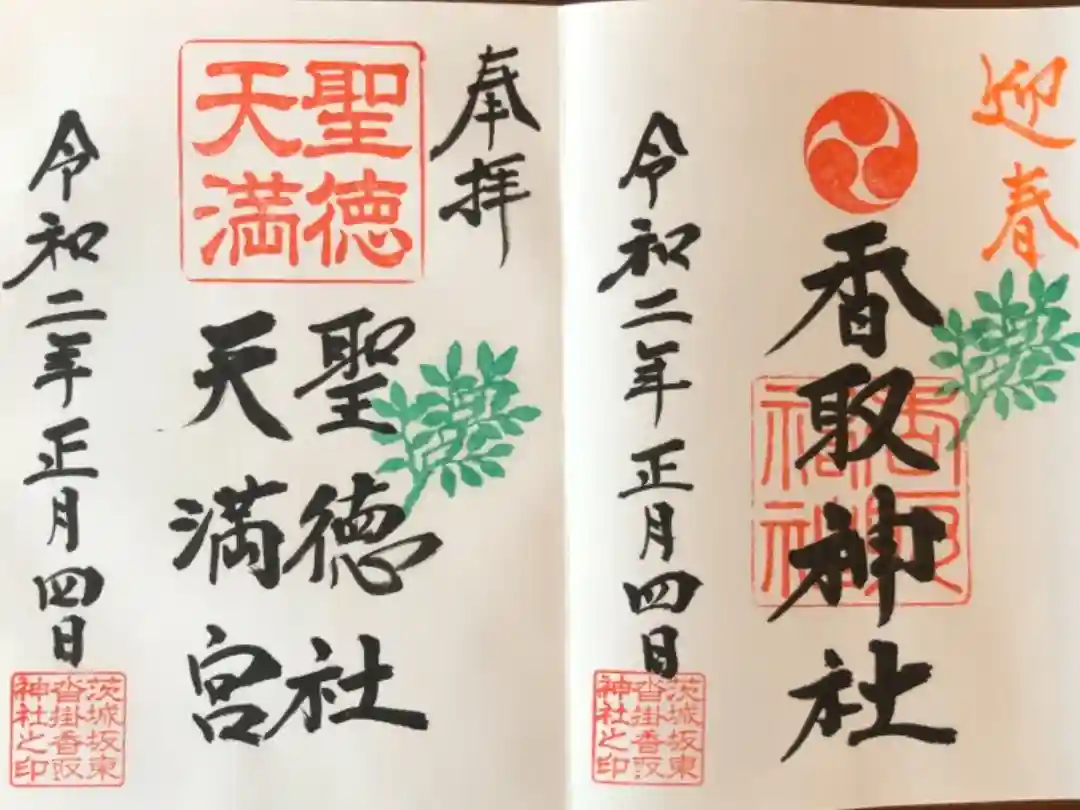 迎春
香取神社
香取
神社
令和二年正月四日
茨城坂東
沓掛香取
神社之印
奉拝
聖徳
天満
聖徳社
天満宮
令和二年正月四日
茨城坂東
沓掛香取
神社之印